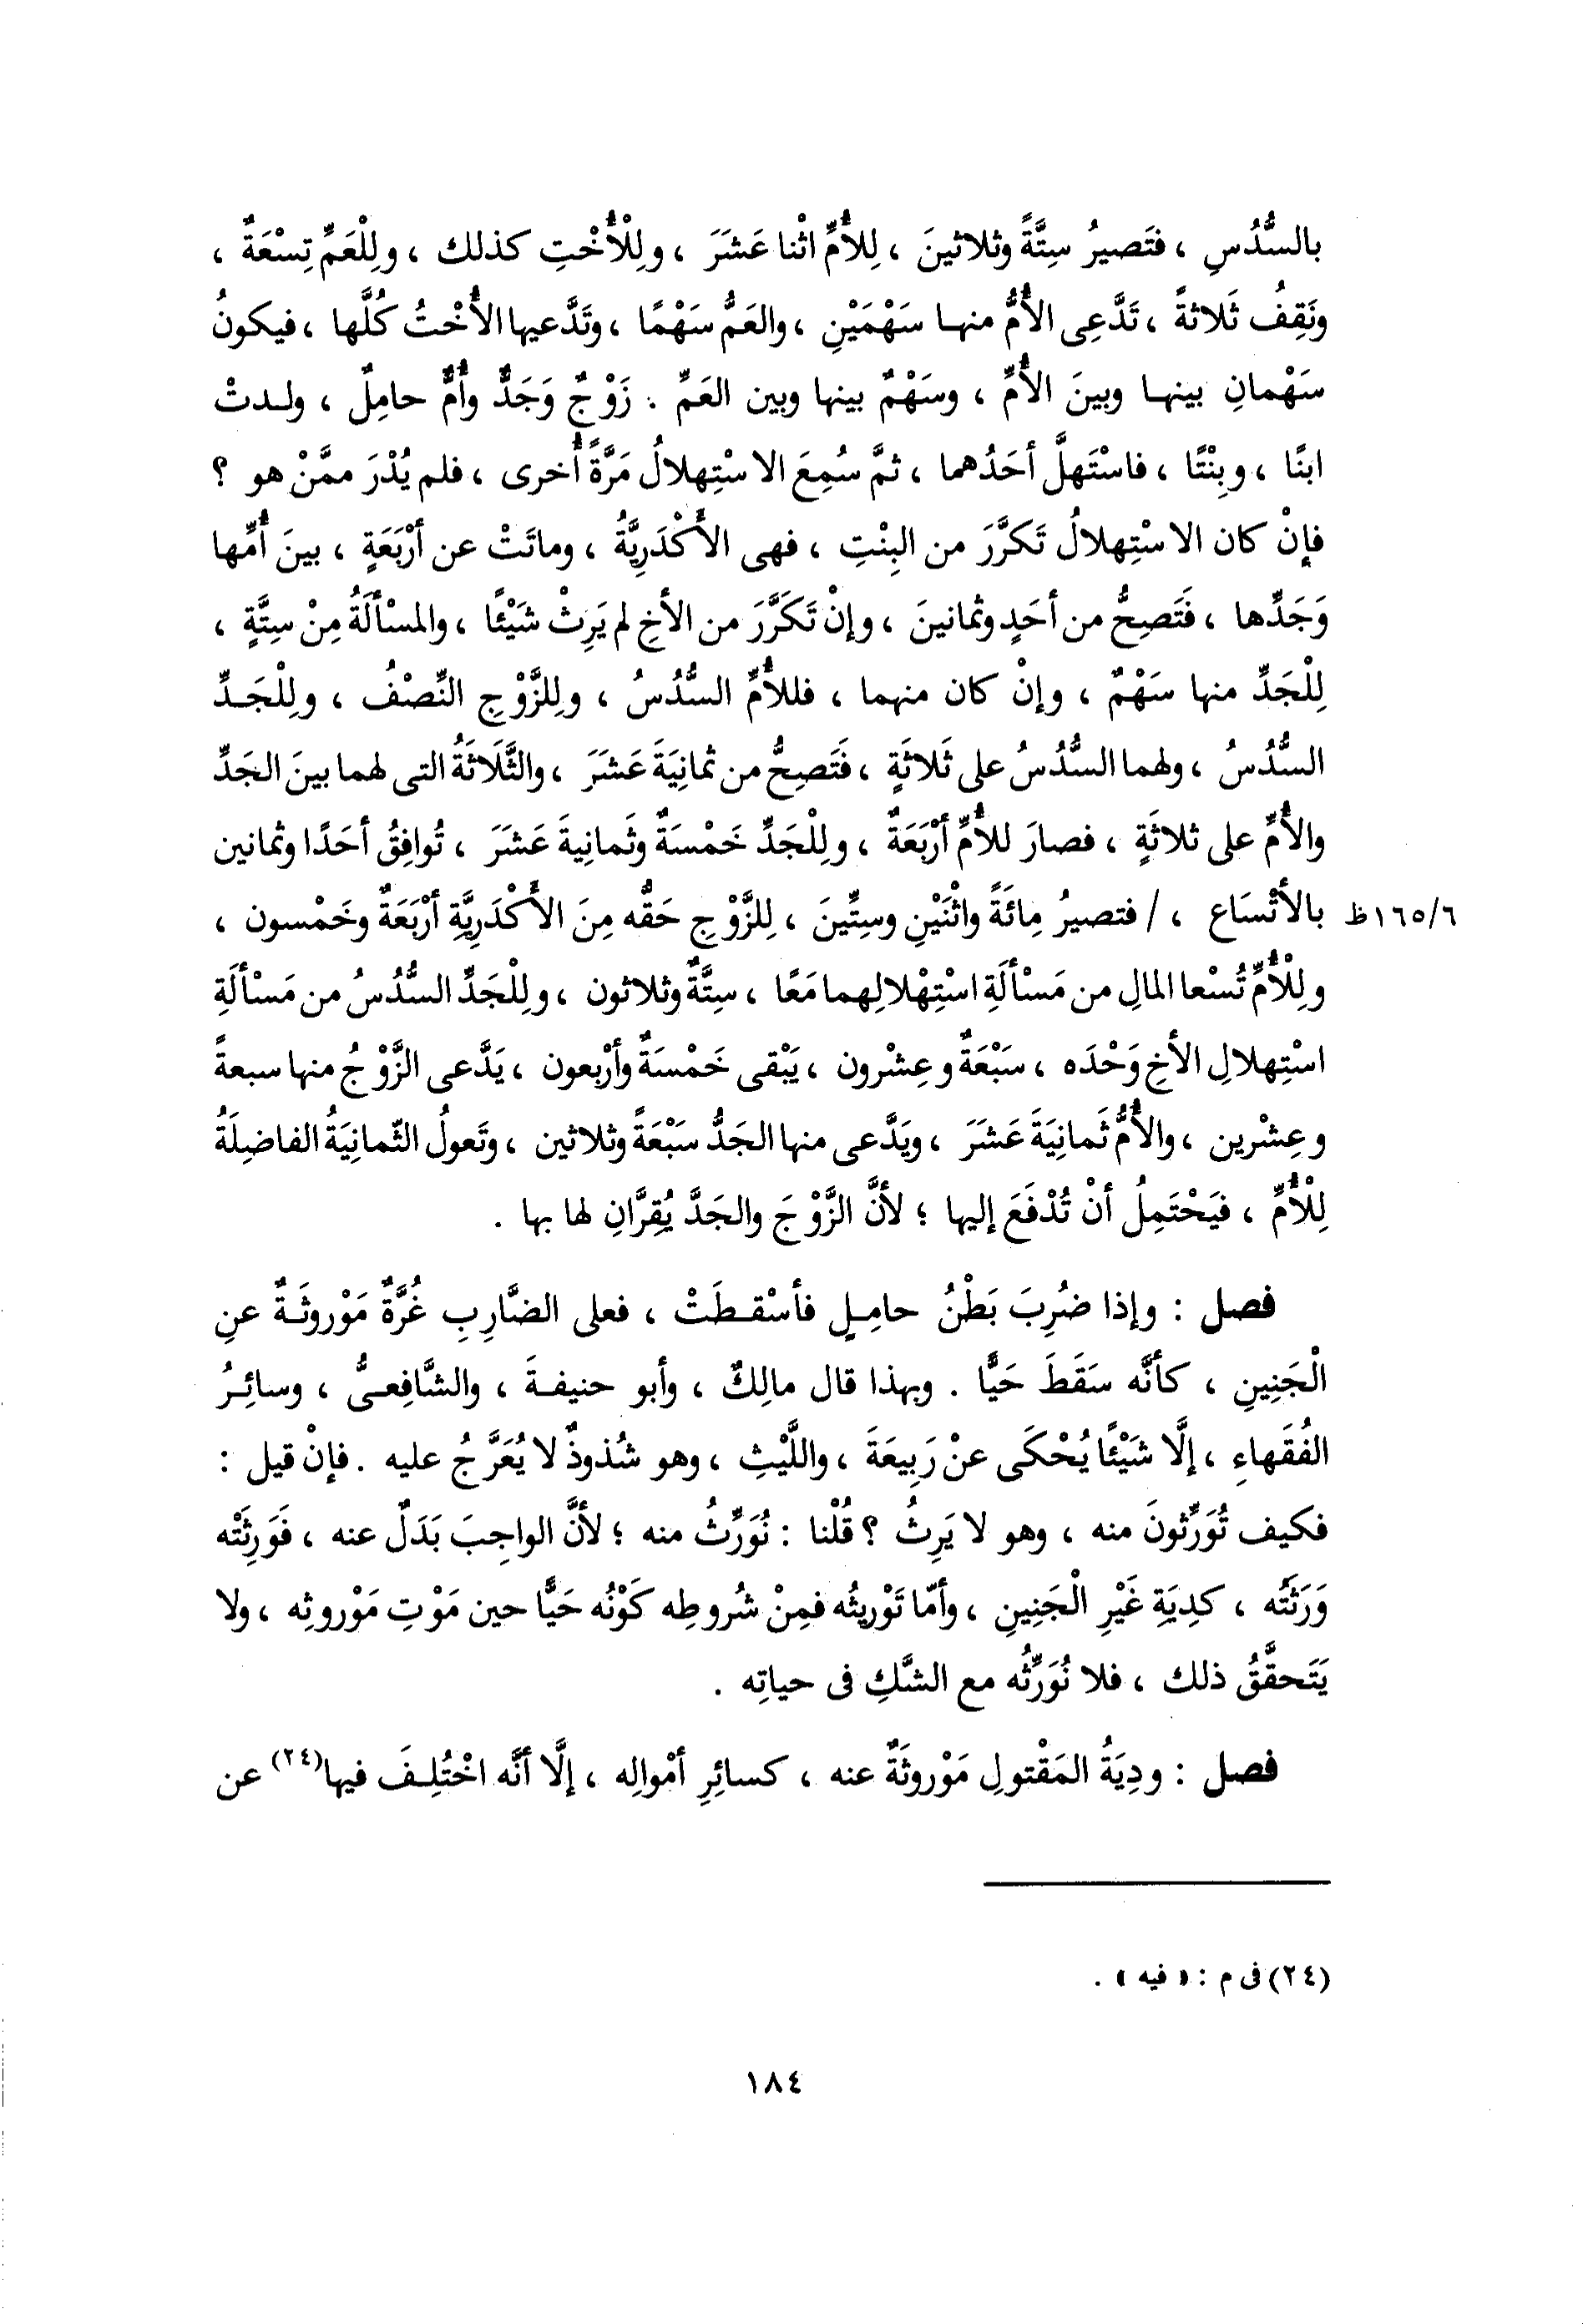 بالسُّدُسِ ، فتَصيرُ سِتَّةً وثلاثينَ ، لِلأُمِّ اثْنا عَشَرَ ، ولِلْأُخْتِ كذلك ، ولِلْعَمِّ تِسْعَةٌ ،
ونَقِفُ ثَلاثةً ، تَدَّعِى الأُمُّ منها سَهْمَيْنِ ، والعَمُّ سَهْمًا ، وتَدَّعيها الأُخْتُ كُلَّها ، فيكونُ
سَهْمانِ بينها وبينَ الأُمِّ ، وسَهْمٌ بينها وبين العَمِّ . زَوْجٌ وَجَدٌّ وأُمٌّ حامِلٌ ، ولدتْ
ابنًا ، وبِنْتًا ، فاسْتَهلَّ أحَدُهما ، ثمَّ سُمِعَ الاسْتِهلالُ مَرَّةً أُخرى ، فلم يُدْرَ ممَّنْ هو ؟
فإنْ كان الاسْتِهلالُ تَكرَّرَ من البِنْتِ ، فهى الأَكْدَرِيَّةُ ، وماتَتْ عن أرْبَعَةٍ ، بينَ أُمِّها
وَجَدِّها ، فَتَصِحُّ من أحَدٍ وثمانينَ ، وإنْ تَكَرَّرَ من الأخِ لم يَرِثْ شَيْئًا ، والمسْألَةُ مِنْ سِتَّةٍ ،
لِلْجَدِّ منها سَهْمٌ ، وإنْ كان منهما ، فللأُمِّ السُّدُسُ ، ولِلزَّوْجِ النِّصْفُ ، ولِلْجَدِّ
السُّدُسُ ، ولهما السُّدُسُ على ثَلاثَةٍ ، فَتَصِحُّ من ثمانِيَةَ عَشَرَ ، والثَّلَاثَةُ التى لهما بينَ الجَدِّ
والأُمِّ على ثلاثَةٍ ، فصارَ للأُمِّ أرْبَعَةٌ ، ولِلْجَدِّ خَمْسَةٌ وثَمانِيةَ عَشَرَ ، تُوافِقُ أحَدًا وثمانين
بالأتْسَاع ، / فتصيرُ مِائَةً واثْنَيْنِ وسِتِّينَ ، لِلزَّوْجِ حَقُّه مِنَ الأكْدَرِيَّةِ أرْبَعَةٌ وخَمْسون ،
١٦٥/٦ظ
ولِلْأُمِّ تُسْعا المالِ من مَسْألَةِ اسْتِهْلالِهما مَعًا ، سِتَّةٌ وثلاثون ، ولِلْجَدِّ السُّدُسُ من مَسْألَةِ
اسْتِهلالِ الأخِ وَحْدَه ، سَبْعَةٌ وعِشْرون ، يَبْقى خَمْسَةٌ وأرْبعون ، يَدَّعى الزَّوْجُ منها سبعةً
وعِشْرين ، والأُمُّ ثَمانِيَةَ عَشَرَ ، ويَدَّعى منها الجَدُّ سَبْعَةً وثلاثين ، وتَعولُ الثّمانِيَةُ الفاضِلَةُ
لِلْأُمِّ ، فيَحْتَمِلُ أنْ تُدْفَعَ إليها ؛ لأنَّ الزَّوْجَ والجَدَّ يُقِرَّانِ لها بها .
فصل : وإذا ضُرِبَ بَطْنُ حامِلٍ فأسْقطَتْ ، فعلى الضَّارِبِ غُرَّةٌ مَوْروثَةٌ عنِ
الْجَنِينِ ، كأنَّه سَقَطَ حَيًّا . وبهذا قال مالِكٌ ، وأبو حنيفةَ ، والشَّافِعىُّ ، وسائِرُ
الفُقَهاءِ ، إلَّا شَيْئًا يُحْكَى عنْ رَبِيعَةَ ، واللَّيْثِ ، وهو شُذوذٌ لا يُعَرَّجُ عليه . فإنْ قيل :
فكيف تُوَرِّثونَ منه ، وهو لا يَرِثُ ؟ قُلْنا : نُوَرِّثُ منه ؛ لأنَّ الواجِبَ بَدَلٌ عنه ، فَوَرِثَتْه
وَرَثَتُه ، كدِيَةِ غَيْرِ الْجَنِينِ ، وأمّا تَوْريثُه فمِنْ شُروطِه كَوْنُه حَيًّا حين مَوْتِ مَوْروثِه ، ولا
يَتَحقَّقُ ذلك ، فلا نُوَرِّثُه مع الشَّكِ فى حياتِه .
فصل : ودِيَةُ المَقْتولِ مَوْروثَةٌ عنه ، كسائِرِ أمْوالِه ، إلَّا أنَّه اخْتُلِفَ فيها(٢٤) عن
(٢٤) فى م : « فيه » .
١٨٤